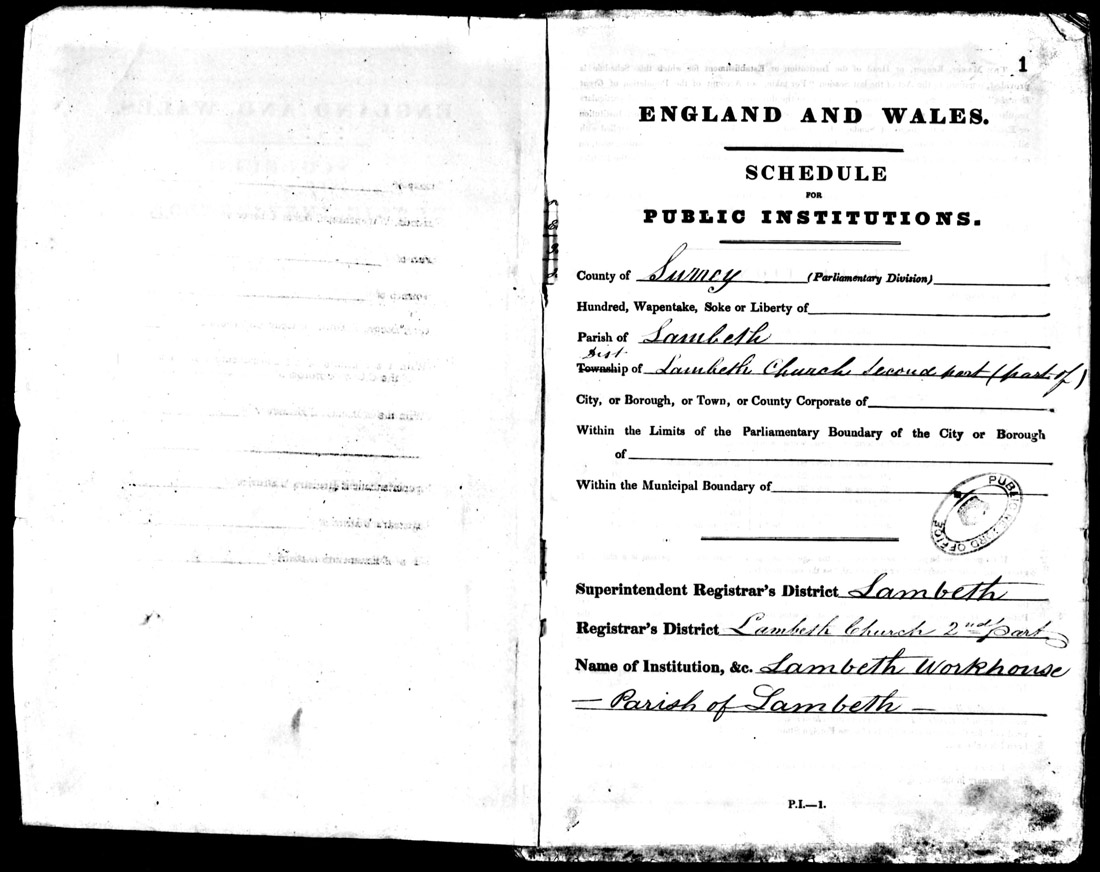 1
ENGLAND AND WALES.
SCHEDULE
FOR
PUBLIC INSTITUTIONS.
County of Surrey (Parliamentary Division)
Hundred, Wapentake, Soke or Liberty of
Parish of Lambeth
Dist.
Township of Lambeth Church Second part (part of)
City, or Borough, or Town, or County Corporate of
Within the Limits of the Parliamentary Boundary of the City or Borough
of
Within the Municipal Boundary of
PUBLIC RECORD OFFICE
Superintendent Registrar's District Lambeth
Registrar's District Lambeth Church 2nd part
Name of Institution, &c. Lambeth Workhouse
— Parish of Lambeth —
P.I.—1.